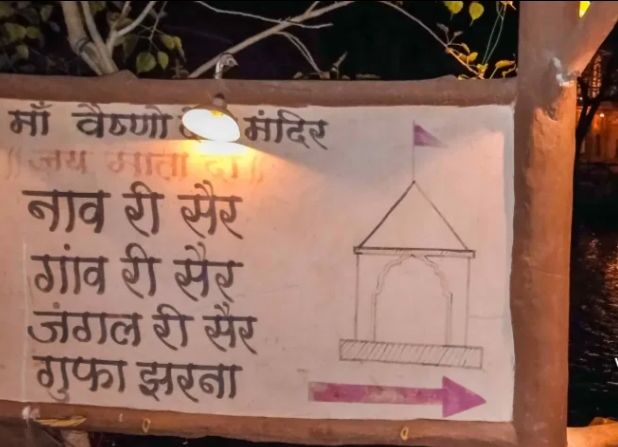 माँ वैष्णो मंदिर
॥ जय माता दी ॥
नाव री सैर
गांव री सैर
जंगल री सैर
गुफा झरना